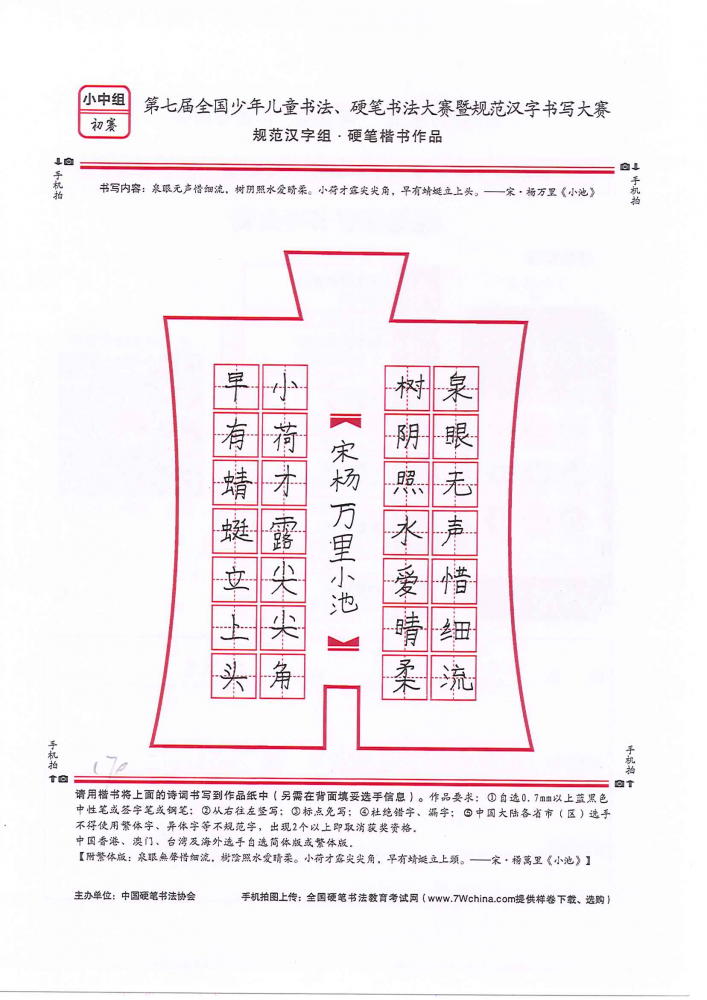 小中组
初赛
第七届全国少年儿童书法、硬笔书法大赛暨规范汉字书写大赛
规范汉字组·硬笔楷书作品
手机拍
手机拍
书写内容：泉眼无声惜细流，树阴照水爱晴柔。小荷才露尖尖角，早有蜻蜓立上头。——宋·杨万里《小池》
泉眼无声惜细流
树阴照水爱晴柔
宋杨万里小池
小荷才露尖尖角
早有蜻蜓立上头
手机拍
手机拍
170
请用楷书将上面的诗词书写到作品纸中（另需在背面填妥选手信息）。作品要求：①自选0.7mm以上蓝黑色
中性笔或签字笔或钢笔；②从右往左竖写；③标点免写；④杜绝错字、漏字；⑤中国大陆各省市（区）选手
不得使用繁体字、异体字等不规范字，出现2个以上即取消获奖资格。
中国香港、澳门、台湾及海外选手自选简体版或繁体版。
【附繁体版：泉眼無聲惜细流，樹陰照水爱晴柔。小荷才露尖尖角，早有蜻蜓立上頭。——宋·楊萬里《小池》】
主办单位：中国硬笔书法协会
手机拍图上传：全国硬笔书法教育考试网（www.7Wchina.com提供样卷下载、选购）